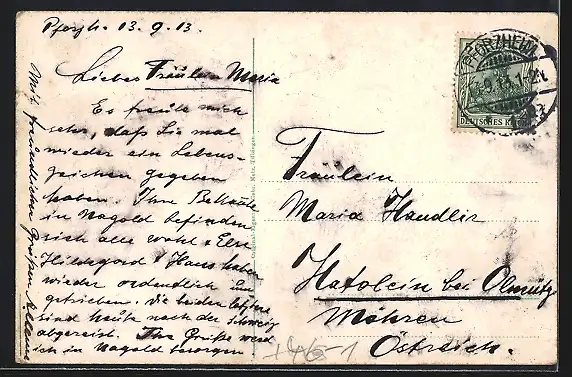 Pforzh. 13.9.13.
Liebes Fräulein Maria
Es freute mich
sehr, daß Sie mal
wieder ein Lebens-
zeichen gegeben
haben. Ihre Bekannte
in Nagold befinden
sich alle wohl. Else
Hildegard & Hans haben
wieder ordentlich
getrieben. Die beiden letztere
sind heute nach der Schweiz
abgereist. Ihre Grüße werd
ich in Nagold besorgen
Mit freundlichen Grüßen
Fräulein
Maria Handlir
Hatolein bei Olmütz
Mähren
Östreich.
PFORZHEIM
13.9.13. 1-2N
DEUTSCHES REICH